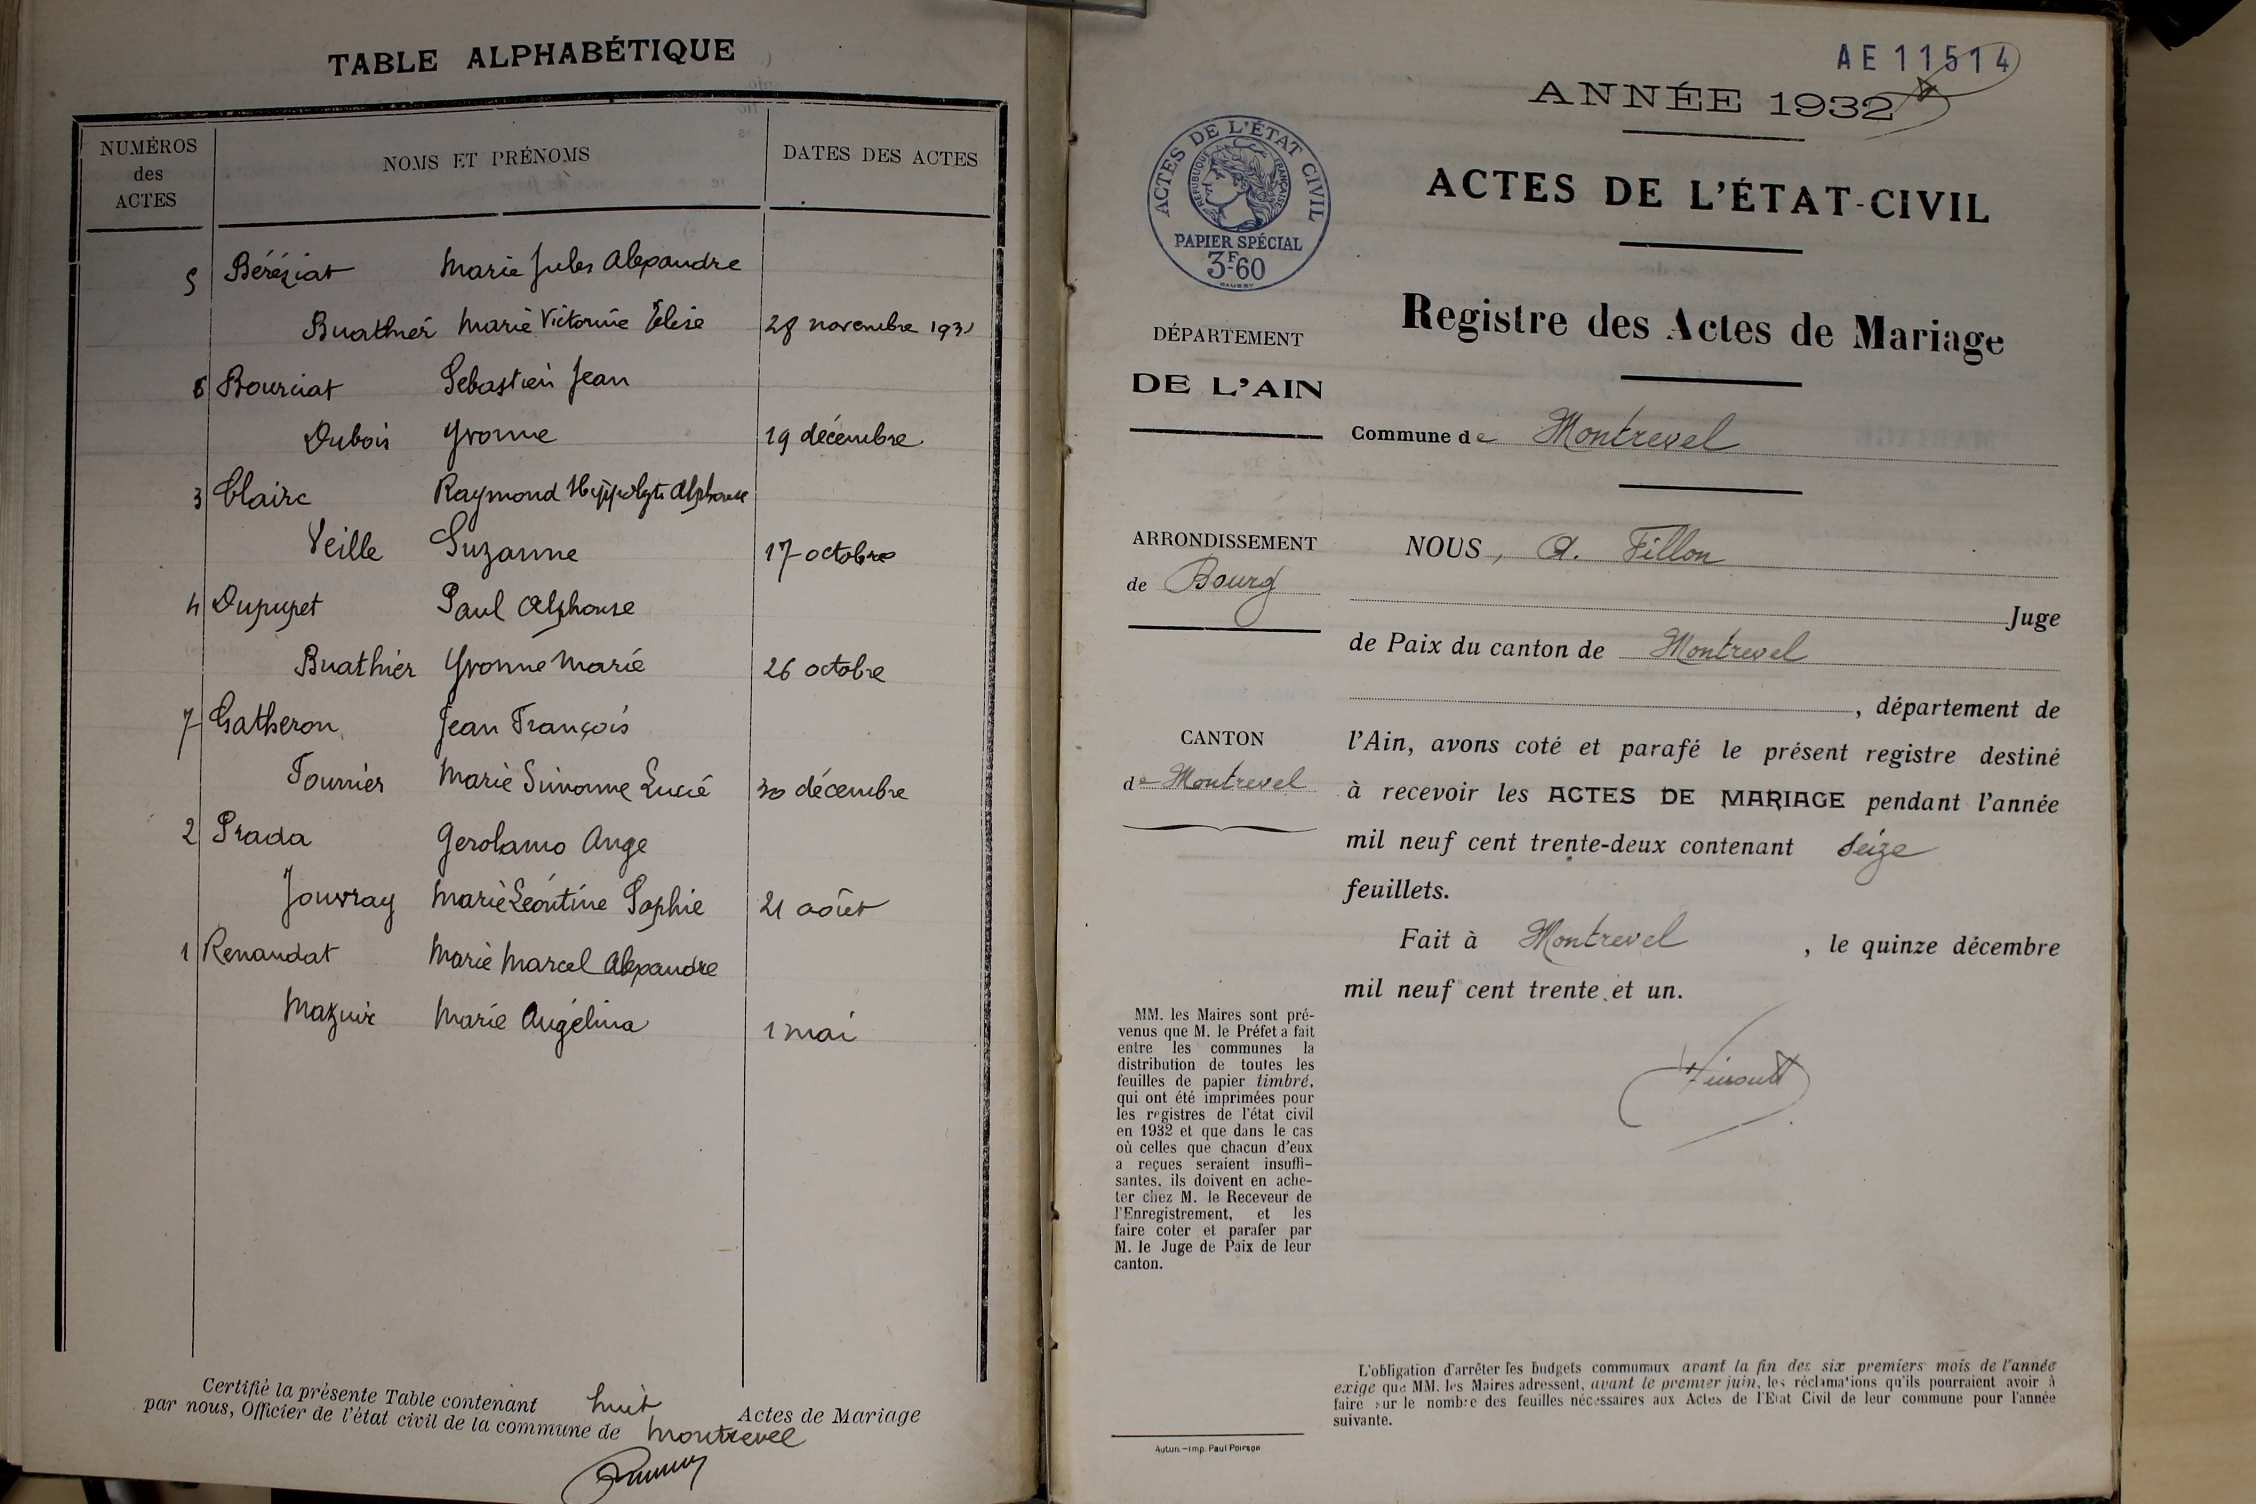 TABLE ALPHABÉTIQUE
NUMÉROS des ACTES
NOMS ET PRÉNOMS
DATES DES ACTES
5 Béréziat Marie Jules Alexandre
Buathier Marie Victorine Élise 28 novembre 1931
6 Bourciat Sebastien Jean
Dubois Yvonne 19 décembre
3 Claire Raymond Hippolyte Alphonse
Veille Suzanne 17 octobre
4 Dupupet Paul Alphonse
Buathier Yvonne Marie 26 octobre
7 Gatheron Jean François
Fournier Marie Simonne Lucie 30 décembre
2 Prada Gerolamo Ange
Jouvray Marie Léontine Sophie 21 août
1 Renaudat Marie Marcel Alexandre
Mazuir Marie Angélina 1 mai
Certifié la présente Table contenant huit Actes de Mariage
par nous, Officier de l'état civil de la commune de Montrevel
AE 11514
ANNÉE 1932
ACTES DE L'ÉTAT CIVIL
RÉPUBLIQUE FRANÇAISE
PAPIER SPÉCIAL
3F60
ACTES DE L'ÉTAT-CIVIL
Registre des Actes de Mariage
DÉPARTEMENT
DE L'AIN
Commune de Montrevel
ARRONDISSEMENT
de Bourg
CANTON
de Montrevel
NOUS, A. Fillon
Juge
de Paix du canton de Montrevel
, département de
l'Ain, avons coté et parafé le présent registre destiné
à recevoir les ACTES DE MARIAGE pendant l'année
mil neuf cent trente-deux contenant seize
feuillets.
Fait à Montrevel , le quinze décembre
mil neuf cent trente et un.
MM. les Maires sont pré-
venus que M. le Préfet a fait
entre les communes la
distribution de toutes les
feuilles de papier timbré,
qui ont été imprimées pour
les registres de l'état civil
en 1932 et que dans le cas
où celles que chacun d'eux
a reçues seraient insuffi-
santes, ils doivent en ache-
ter chez M. le Receveur de
l'Enregistrement, et les
faire coter et parafer par
M. le Juge de Paix de leur
canton.
Autun.—Imp. Paul Poirson
L'obligation d'arrêter les budgets communaux avant la fin des six premiers mois de l'année
exige que MM. les Maires adressent, avant le premier juin, les réclamations qu'ils pourraient avoir à
faire sur le nombre des feuilles nécessaires aux Actes de l'Etat Civil de leur commune pour l'année
suivante.